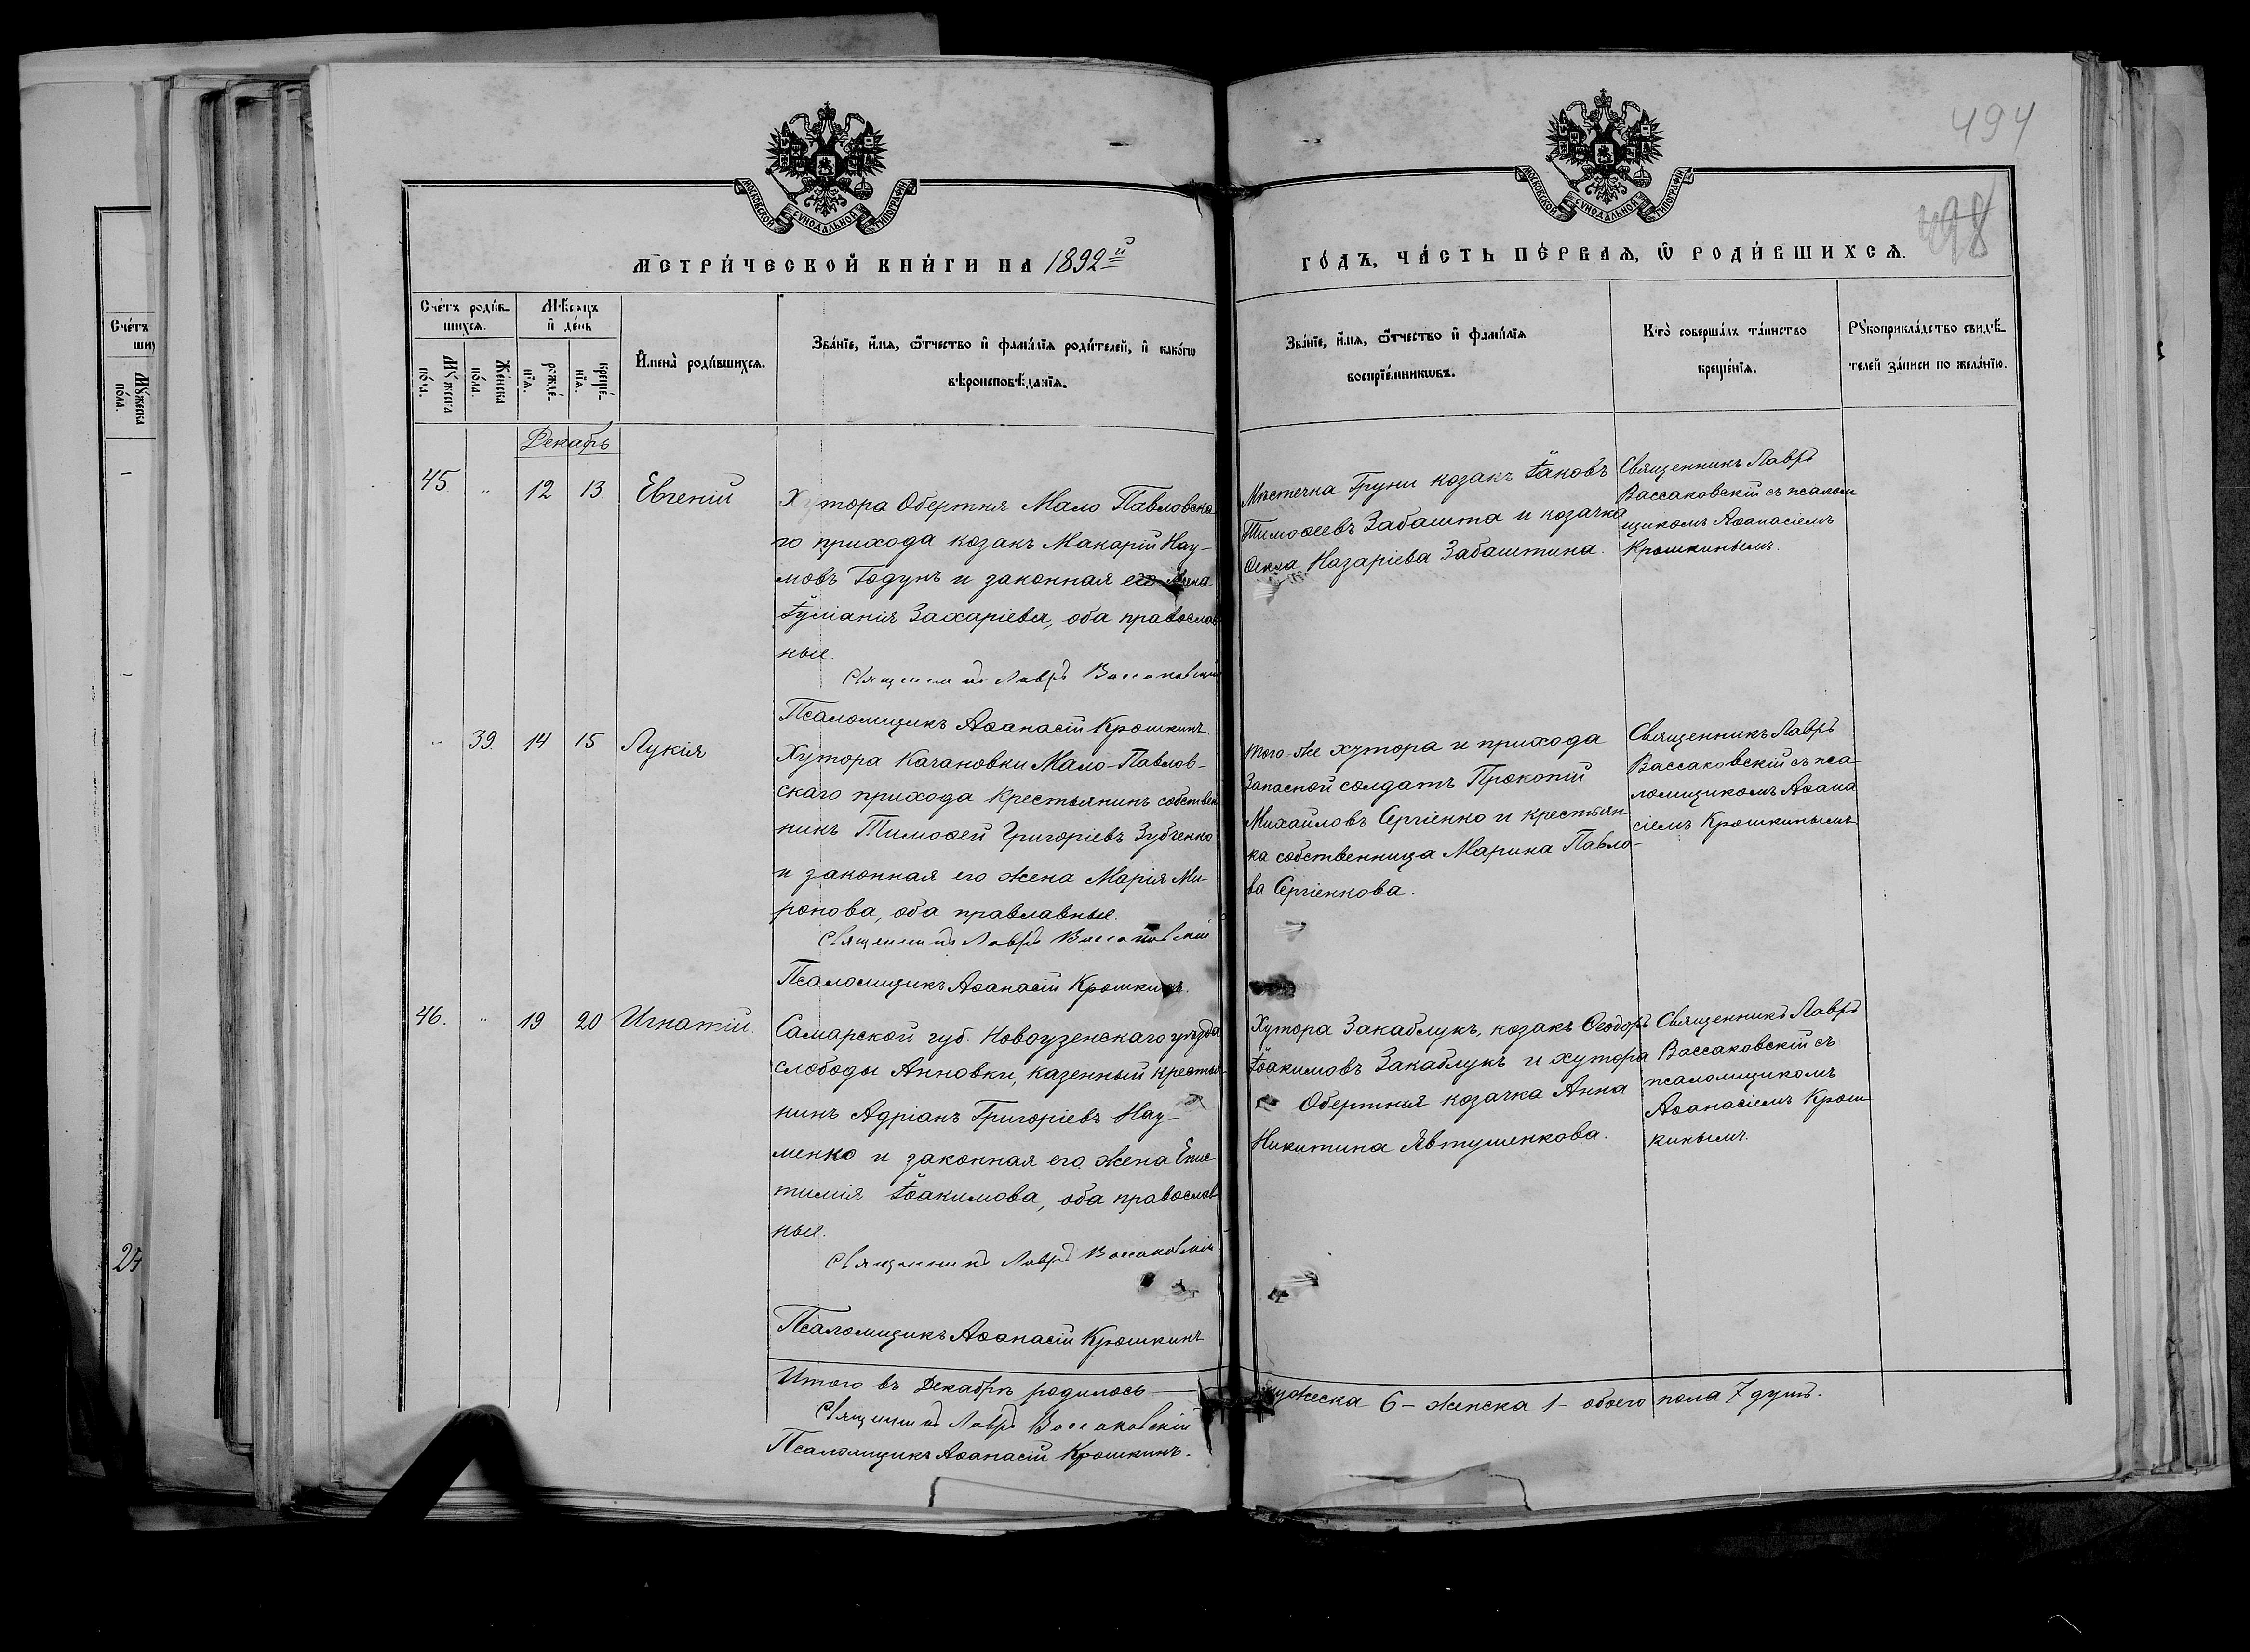 494
498
МОСКОВСКОЙ СѴНОДАЛЬНОЙ ТИПОГРАФІИ
МОСКОВСКОЙ СѴНОДАЛЬНОЙ ТИПОГРАФІИ
МЕТРИ́ЧЕСКОЙ КНИ́ГИ НА 1892й
ГО́ДЪ, ЧА́СТЬ ПЕ́РВАЯ, Ѡ РОДИ́ВШИХСЯ.
Сче́тъ роди́в-
шихся.
Му́жеска
по́ла.
Же́нска
по́ла.
Мѣ́сяцъ
и де́нь
рожде́-
нїя.
креще́-
нїя.
Имена̀ роди́вшихся.
Зва́нїе, и́мя, ѻ́тчество и фами́лїя роди́телей, и како́гѡ
вѣроисповѣ́данїя.
Зва́нїе, и́мя, ѻ́тчество и фами́лїя
воспрїе́мникѡвъ.
Кто̀ соверша́лъ та́инство
креще́нїя.
Рꙋкоприкла́дство свидѣ́-
телей за́писи по жела́нїю.
Сче́тъ
ши
Му́жеска
по́ла.
24
Декабрь
45. " 12 13. Евгеній
Хутора Обертня Мало Павловска-
го прихода козакъ Макарій Нау-
мовъ Годунъ и законная его жена
Іуліанія Захаріева, оба православ
ные.
Священникъ Лавръ Вассаковскій
Псаломщикъ Аѳанасій Крошкинъ.
Мѣстечка Груни козакъ Іаковъ
Тимоѳеевъ Забашта и козачка
Ѳекла Назаріева Забаштина.
Священникъ Лавръ
Вассаковскій съ псалом
щикомъ Аѳанасіемъ
Крошкинымъ.
" 39. 14 15 Лукія
Хутора Качановки Мало-Павлов-
скаго прихода крестьянинъ собствен
никъ Тимоѳей Григоріевъ Зубченко
и законная его жена Марія Ми-
ронова, оба правлавные.
Священникъ Лавръ Вассаковскій
Псаломщикъ Аѳанасій Крошкинъ.
того-же хутора и прихода
Запасной солдатъ Прокопій
Михайловъ Сергіенко и крестьян-
ка собственница Марина Павло-
ва Сергіенкова.
Священникъ Лавръ
Вассаковскій съ пса-
ломщикомъ Аѳана
сіемъ Крошкинымъ
46. " 19 20 Игнатій.
Самарской губ. Новоузенскаго уѣзда
слободы Анновки, казенный крестья-
нинъ Адріанъ Григоріевъ Нау-
менко и законная его жена Епис-
тимія Іоакимова, оба православ
ные.
Священникъ Лавръ Вассаковскій
Псаломщикъ Аѳанасій Крошкинъ
Хутора Закаблукъ, козакъ Ѳеодоръ
Іоакимовъ Закаблукъ и хутора
Обертня козачка Анна
Никитина Явтушенкова.
Священникъ Лавръ
Вассаковскій съ
псаломщикомъ
Аѳанасіемъ Крош
кинымъ.
Итого въ Декабрѣ родилось — мужеска 6 – женска 1 – обоего пола 7 душъ.
Священникъ Лавръ Вассаковскій
Псаломщикъ Аѳанасій Крошкинъ.